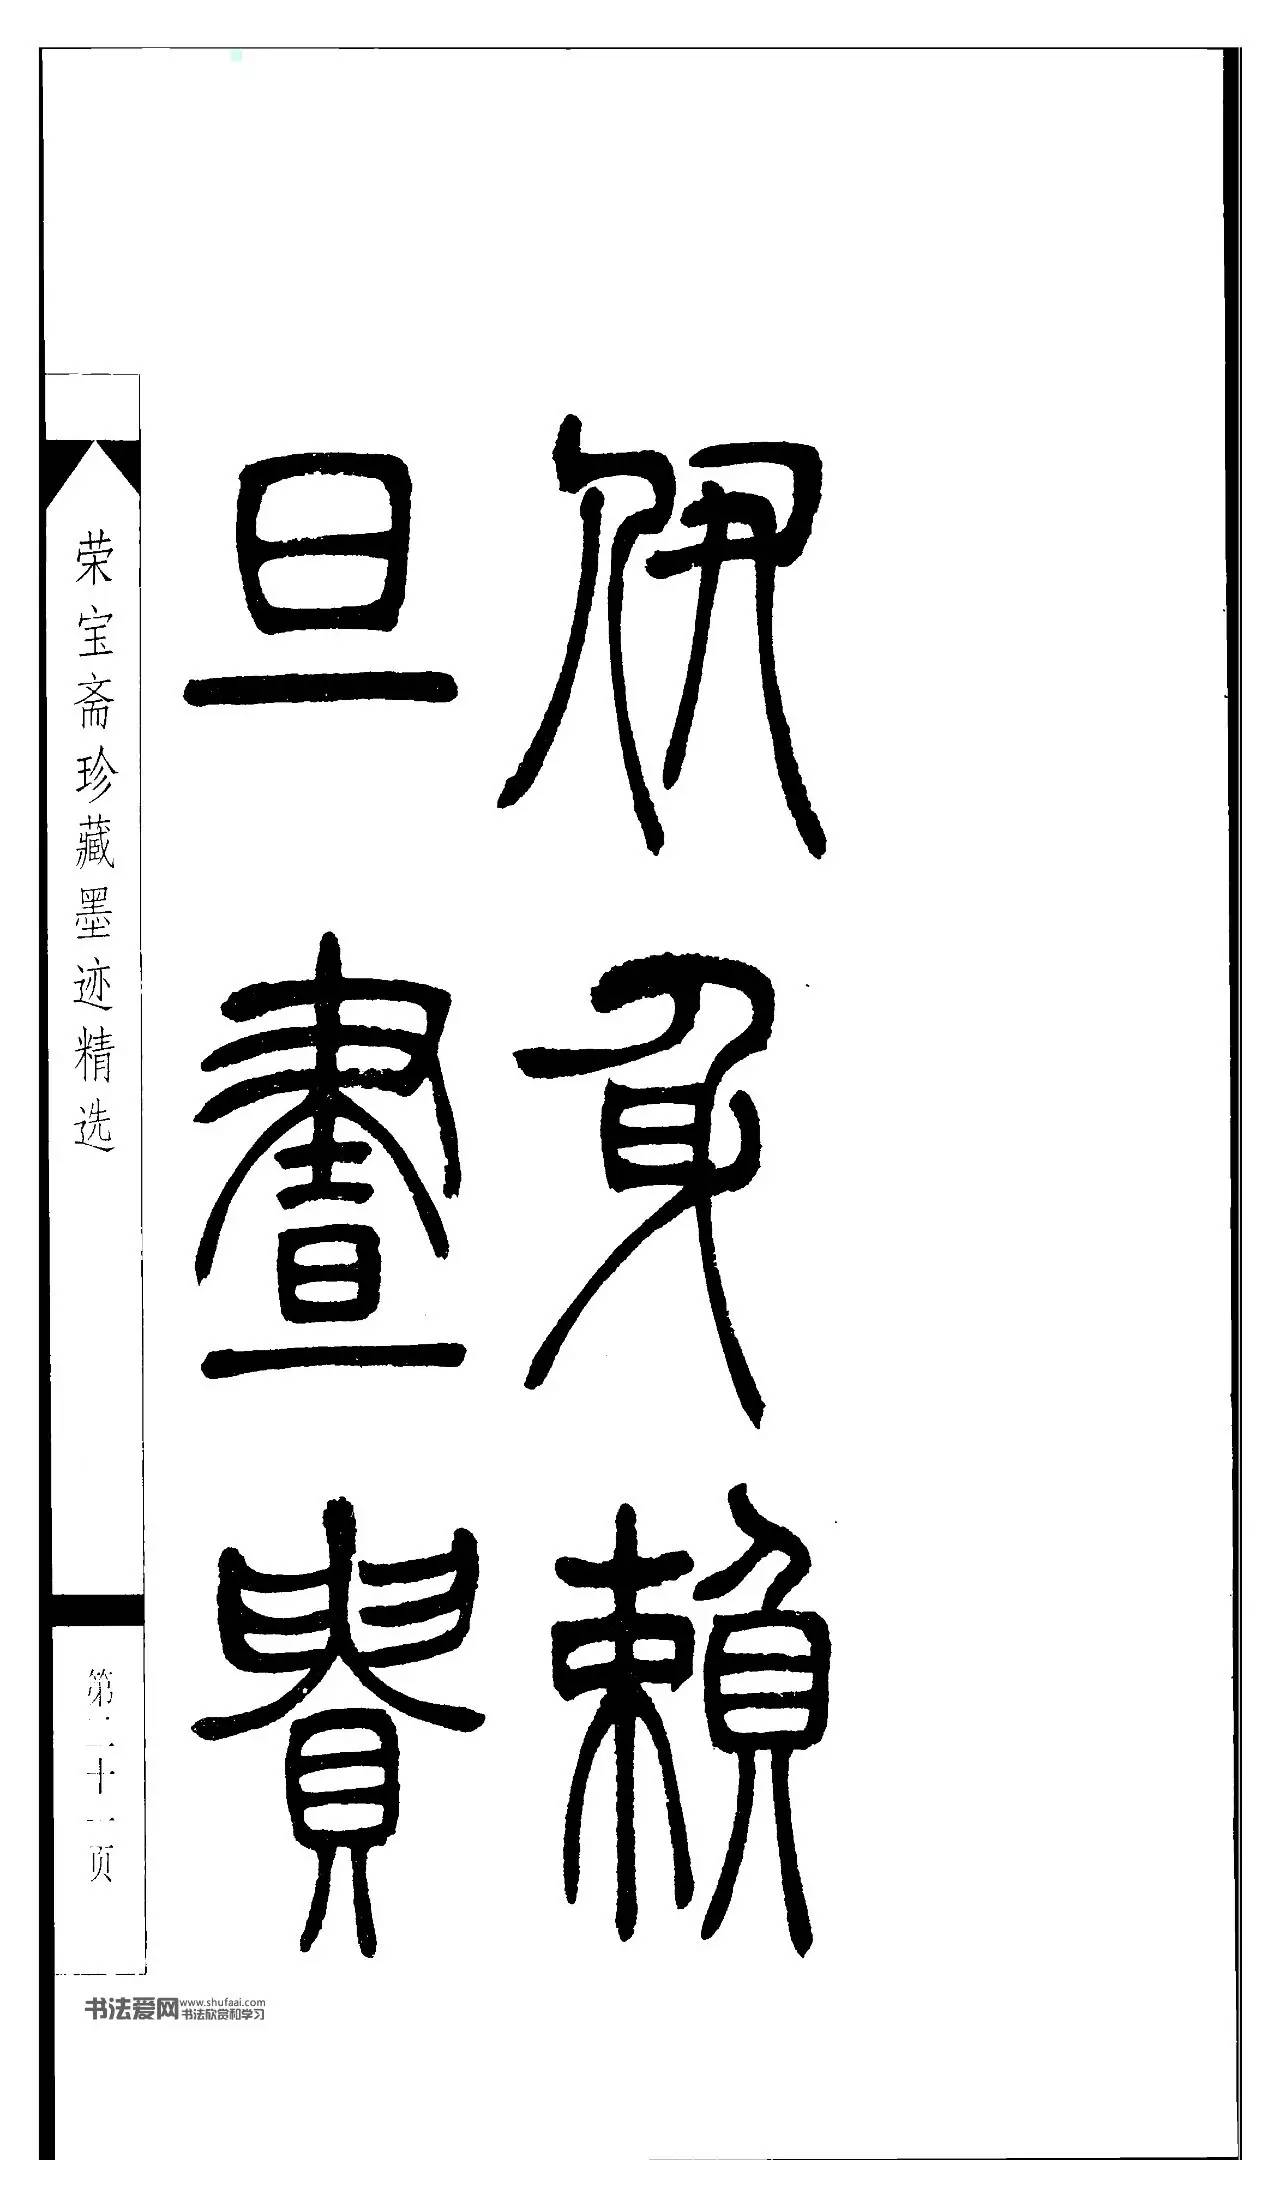 伊身賴
旦晝貴
荣宝斋珍藏墨迹精选
第二十一页
书法爱网 www.shufaai.com
书法欣赏和学习